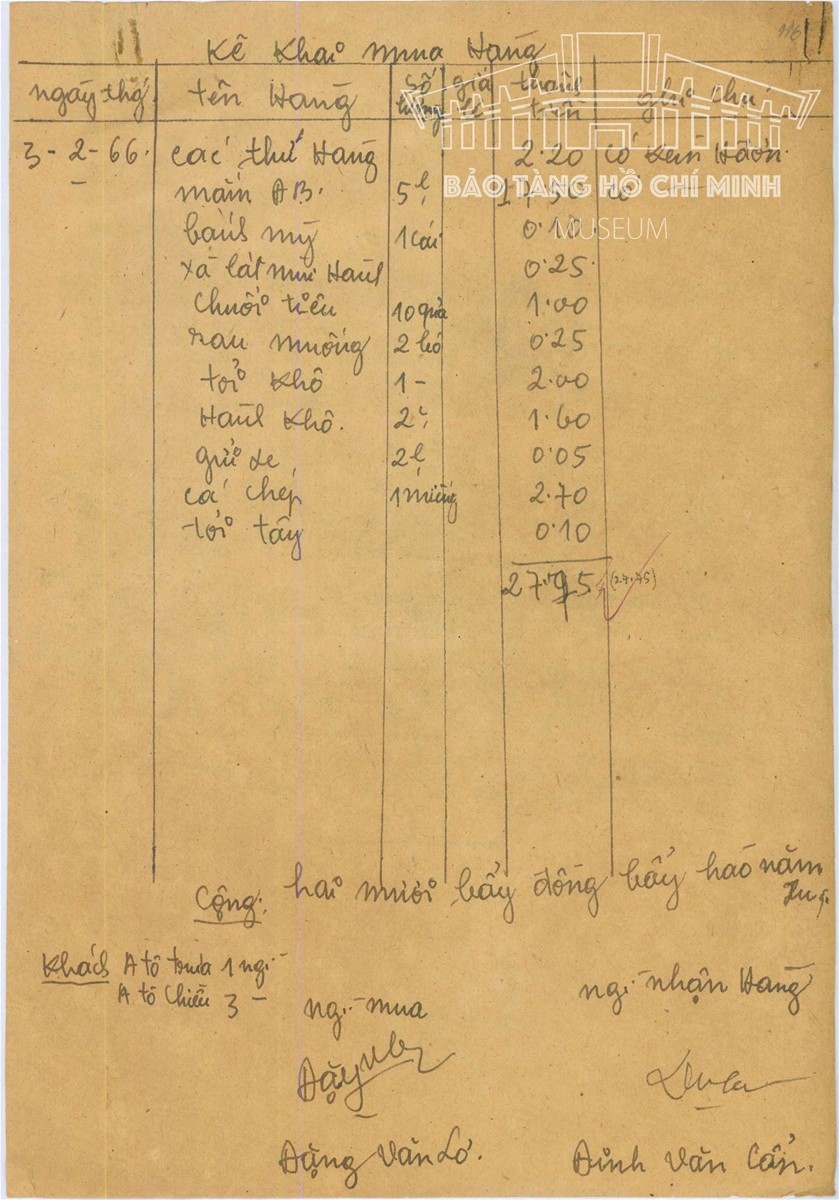 116
Kê Khai mua Hàng
ngày thg̣ tên Hàng Số lượng giá thành tiền ghi chú
3-2-66. các thứ Hàng 2.20 có kèm Hđơn.
mắm AB. 5l
bánh mỳ 1 cái 0.10
xà lát mùi Hành 0.25
chuối tiêu 10 quả 1.00
rau muống 2 bó 0.25
tỏi khô 1 - 2.00
Hành khô. 2 1.60
gửi xe 2l 0.05
cá chép 1 miếng 2.70
tỏi tây 0.10
27.75 (27.75)
Cộng: hai mươi bẩy đồng bẩy hào năm xu
Khách A tô trưa 1 ng:-
A tô chiều 3 -
ng:- mua
ng:- nhận Hàng
Đặng Văn Lơ.
Đinh Văn Cẩn.
BẢO TÀNG HỒ CHÍ MINH
MUSEUM